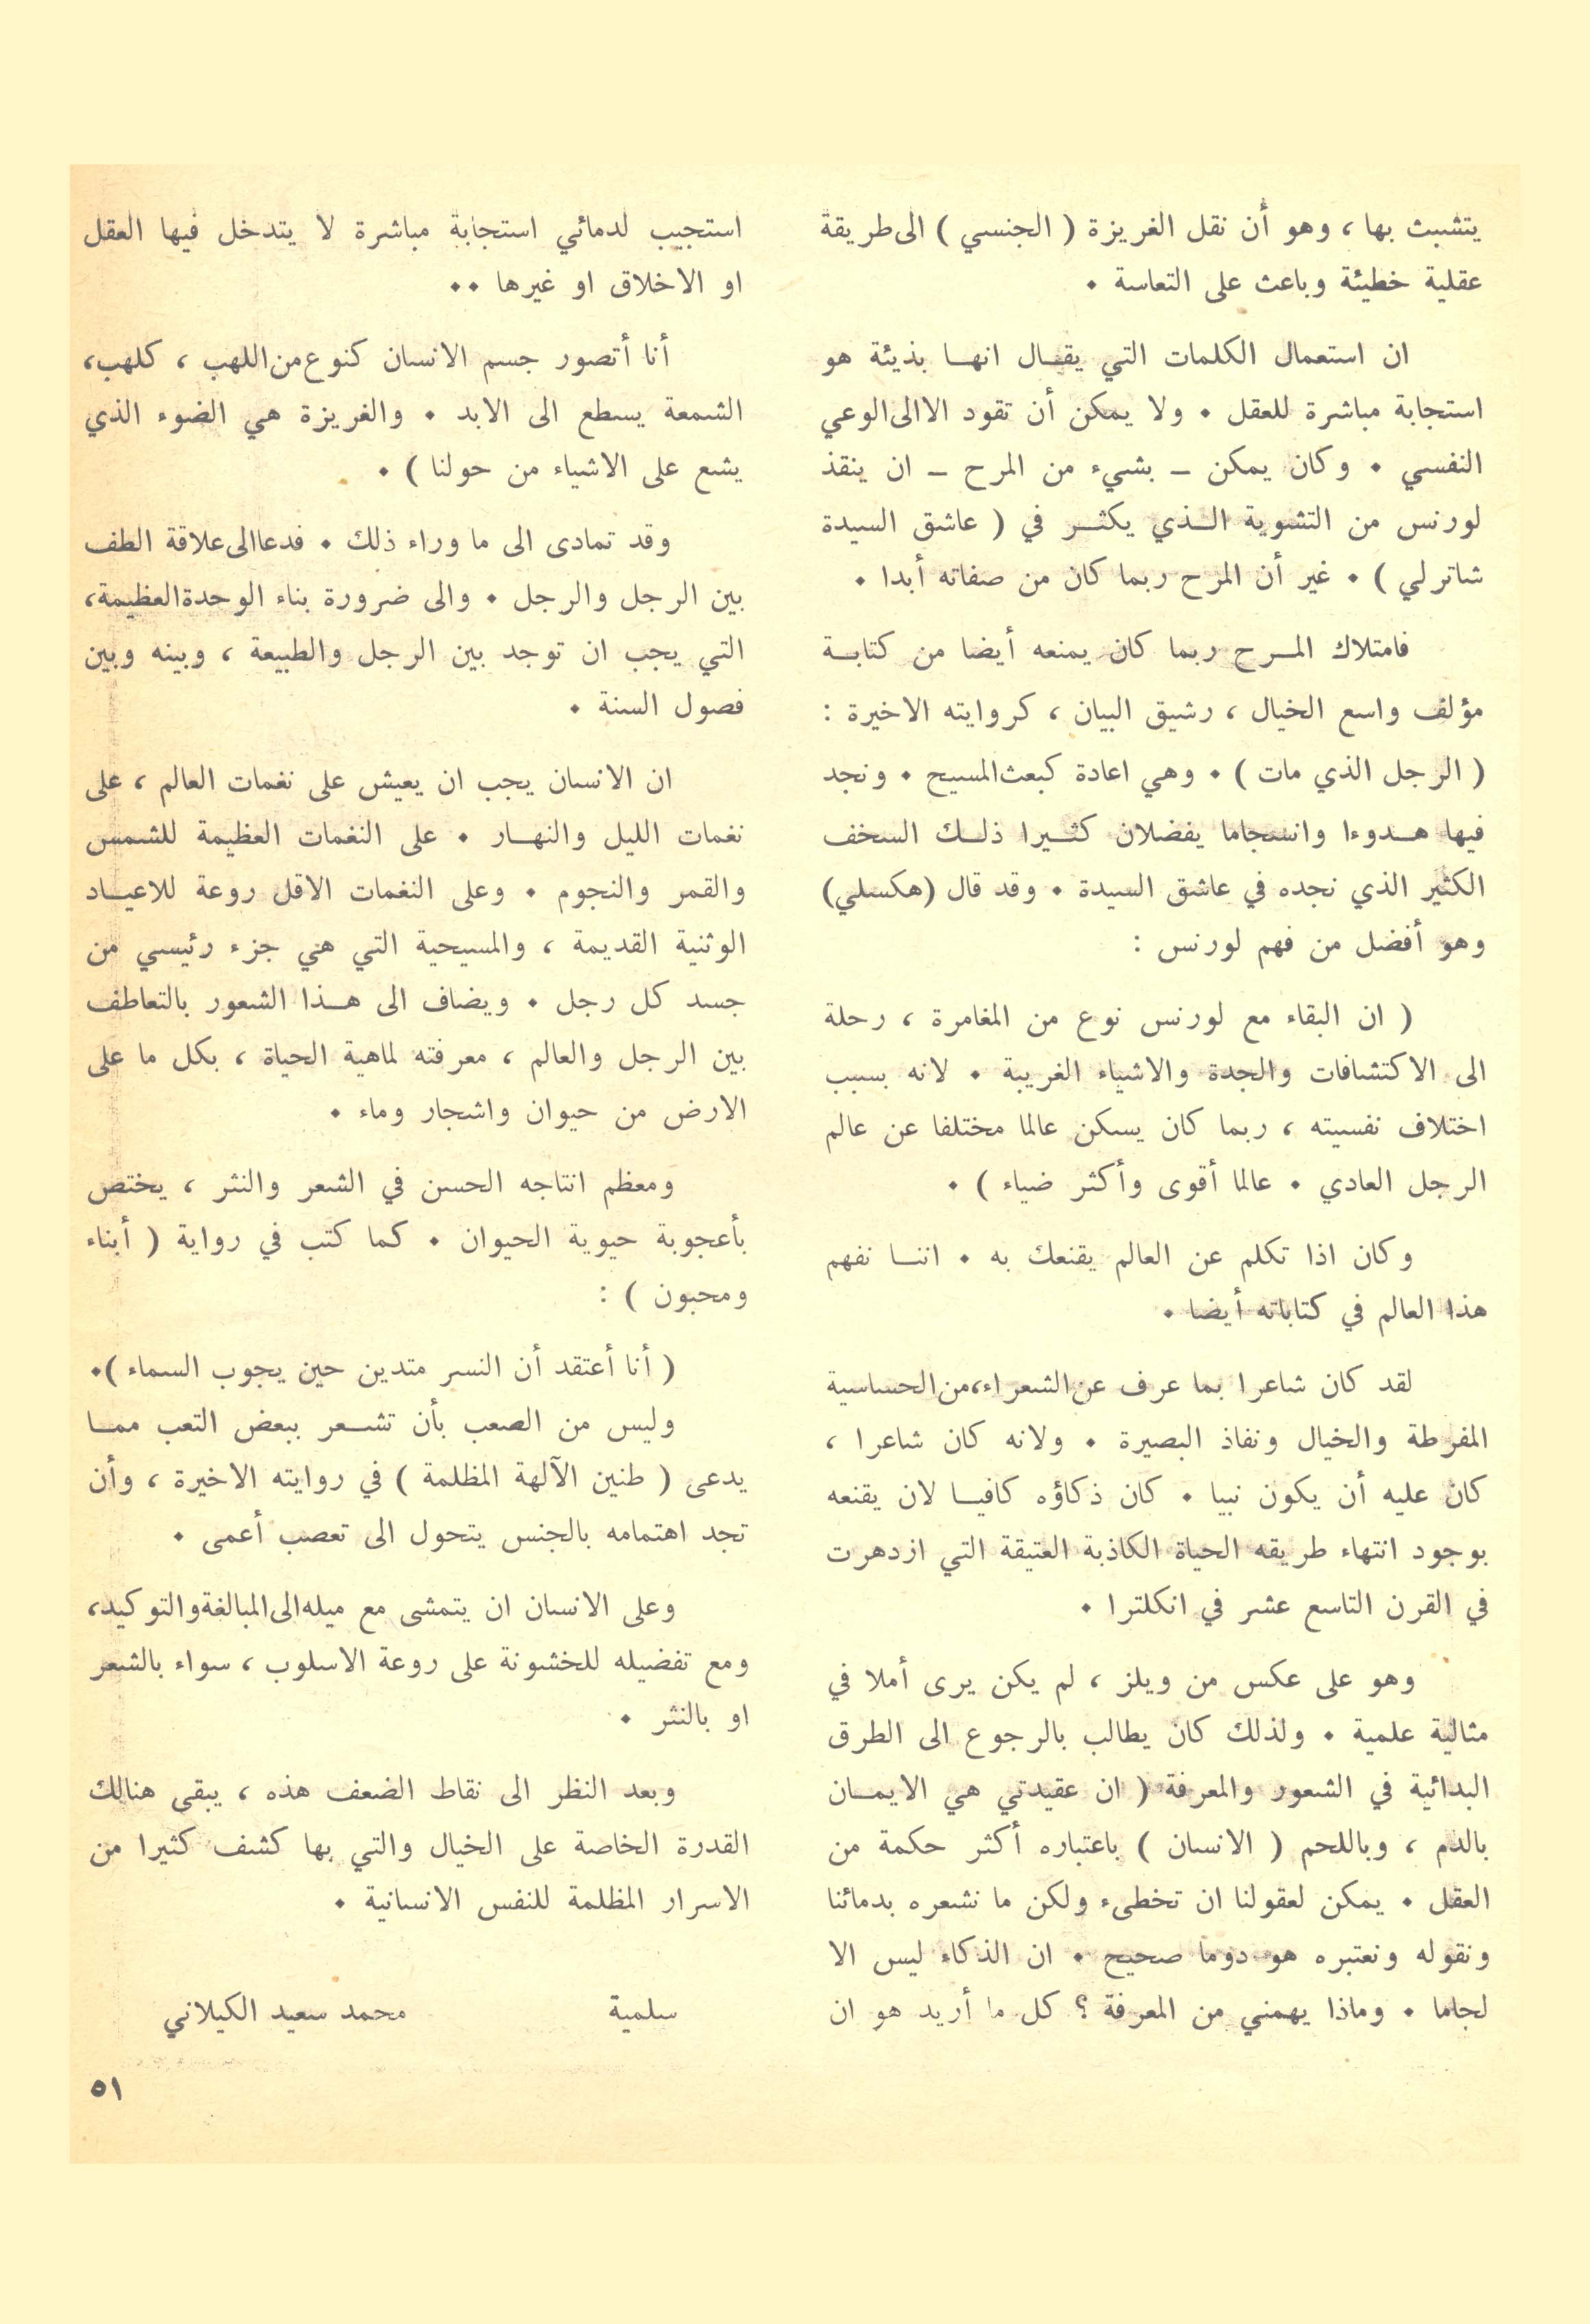 يتشبث بها ، وهو أن نقل الغريزة ( الجنسي ) الى طريقة
عقلية خطيئة وباعث على التعاسة .
ان استعمال الكلمات التي يقال انها بذيئة هو
استجابة مباشرة للعقل . ولا يمكن أن تقود الا الى الوعي
النفسي . وكان يمكن – بشيء من المرح – ان ينقذ
لورنس من التشوية الذي يكثر في ( عاشق السيدة
شاترلي ) . غير أن المرح ربما كان من صفاته أبدا .
فامتلاك المرح ربما كان يمنعه أيضا من كتابة
مؤلف واسع الخيال ، رشيق البيان ، كروايته الاخيرة :
( الرجل الذي مات ) . وهي اعادة كبعث المسيح . ونجد
فيها هدوءا وانسجاما يفضلان كثيرا ذلك السخف
الكثير الذي نجده في عاشق السيدة . وقد قال (هكسلي)
وهو أفضل من فهم لورنس :
( ان البقاء مع لورنس نوع من المغامرة ، رحلة
الى الاكتشافات والجدة والاشياء الغريبة . لانه بسبب
اختلاف نفسيته ، ربما كان يسكن عالما مختلفا عن عالم
الرجل العادي . عالما أقوى وأكثر ضياء ) .
وكان اذا تكلم عن العالم يقنعك به . اننا نفهم
هذا العالم في كتاباته أيضا .
لقد كان شاعرا بما عرف عن الشعراء، من الحساسية
المفرطة والخيال ونفاذ البصيرة . ولانه كان شاعرا ،
كان عليه أن يكون نبيا . كان ذكاؤه كافيا لان يقنعه
بوجود انتهاء طريقه الحياة الكاذبة العتيقة التي ازدهرت
في القرن التاسع عشر في انكلترا .
وهو على عكس من ويلز ، لم يكن يرى أملا في
مثالية علمية . ولذلك كان يطالب بالرجوع الى الطرق
البدائية في الشعور والمعرفة ( ان عقيدتي هي الايمان
بالدم ، وباللحم ( الانسان ) باعتباره أكثر حكمة من
العقل . يمكن لعقولنا ان تخطىء ولكن ما نشعره بدمائنا
ونقوله ونعتبره هو دوما صحيح . ان الذكاء ليس الا
لجاما . وماذا يهمني من المعرفة ؟ كل ما أريد هو ان
استجيب لدمائي استجابة مباشرة لا يتدخل فيها العقل
او الاخلاق او غيرها ..
أنا أتصور جسم الانسان كنوع من اللهب ، كلهب،
الشمعة يسطع الى الابد . والغريزة هي الضوء الذي
يشع على الاشياء من حولنا ) .
وقد تمادى الى ما وراء ذلك . فدعا الى علاقة الطف
بين الرجل والرجل . والى ضرورة بناء الوحدة العظيمة،
التي يجب ان توجد بين الرجل والطبيعة ، وبينه وبين
فصول السنة .
ان الانسان يجب ان يعيش على نغمات العالم ، على
نغمات الليل والنهار . على النغمات العظيمة للشمس
والقمر والنجوم . وعلى النغمات الاقل روعة للاعياد
الوثنية القديمة ، والمسيحية التي هي جزء رئيسي من
جسد كل رجل . ويضاف الى هذا الشعور بالتعاطف
بين الرجل والعالم ، معرفته لماهية الحياة ، بكل ما على
الارض من حيوان واشجار وماء .
ومعظم انتاجه الحسن في الشعر والنثر ، يختص
بأعجوبة حيوية الحيوان . كما كتب في رواية ( أبناء
ومحبون ) :
( أنا أعتقد أن النسر متدين حين يجوب السماء ).
وليس من الصعب بأن تشعر ببعض التعب مما
يدعى ( طنين الآلهة المظلمة ) في روايته الاخيرة ، وأن
تجد اهتمامه بالجنس يتحول الى تعصب أعمى .
وعلى الانسان ان يتمشى مع ميله الى المبالغة والتوكيد،
ومع تفضيله للخشونة على روعة الاسلوب ، سواء بالشعر
او بالنثر .
وبعد النظر الى نقاط الضعف هذه ، يبقى هنالك
القدرة الخاصة على الخيال والتي بها كشف كثيرا من
الاسرار المظلمة للنفس الانسانية .
سلمية محمد سعيد الكيلاني
٥١